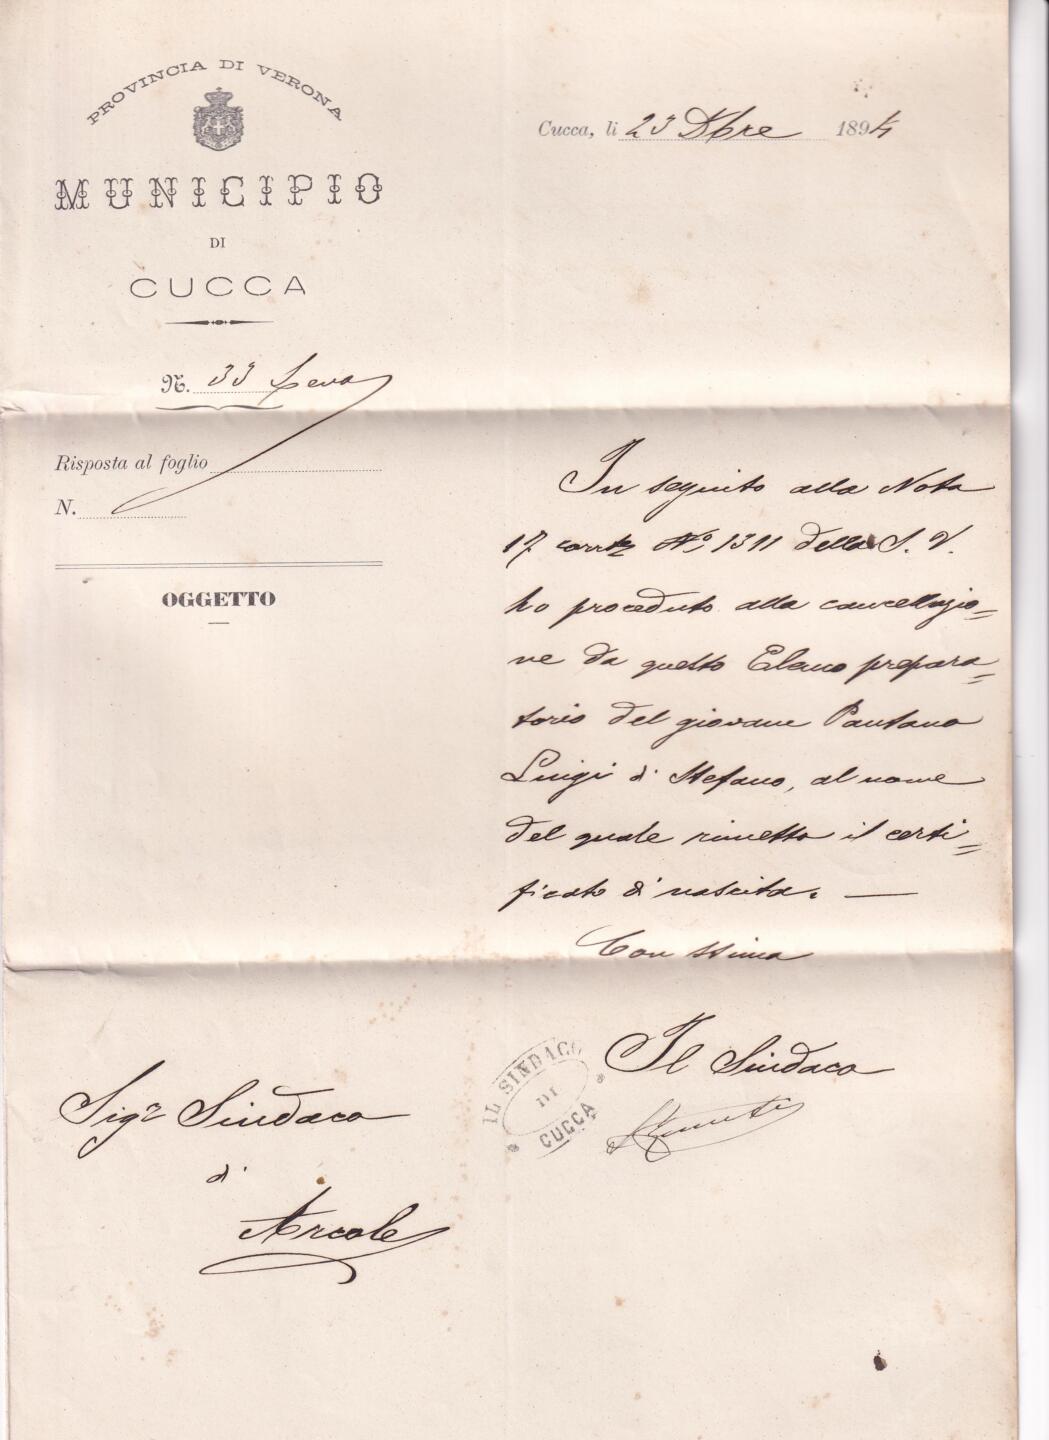 PROVINCIA DI VERONA
MUNICIPIO
DI
CUCCA
Cucca, li 23 Xbre 1894
N. 33 Leva
Risposta al foglio
N.
OGGETTO
In seguito alla Nota
17 corrte No 1311 della S. V.
ho proceduto alla cancellazio=
ne da questo Elenco prepara=
torio del giovane Pantano
Luigi di Stefano, al nome
del quale rimetto il certi=
ficato di nascita. —
Con stima
Il Sindaco
IL SINDACO
DI
CUCCA
Sigr Sindaco
di
Arcole